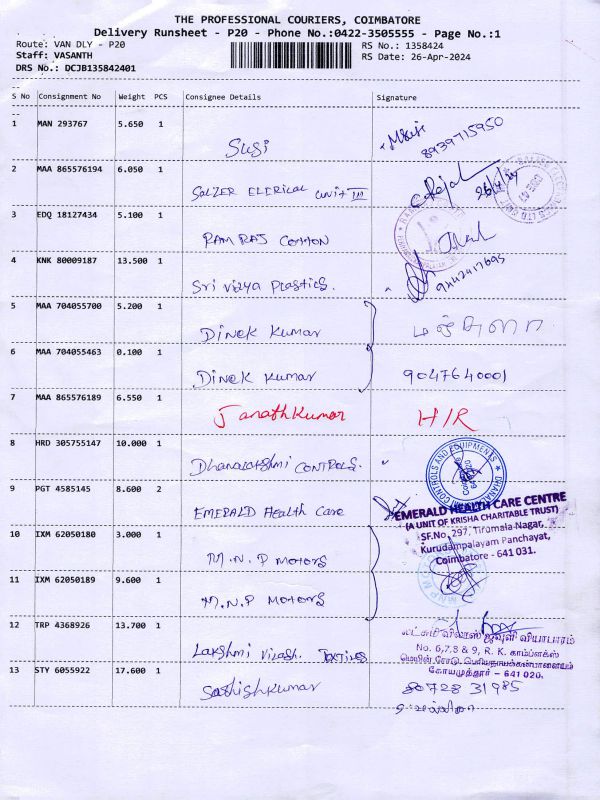 THE PROFESSIONAL COURIERS, COIMBATORE
Delivery Runsheet - P20 - Phone No.:0422-3505555 - Page No.:1
Route: VAN DLY - P20 RS No.: 1358424
Staff: VASANTH RS Date: 26-Apr-2024
DRS No.: DCJB135842401
S No Consignment No Weight PCS Consignee Details Signature
1 MAN 293767 5.650 1 Susi 8939715950
2 MAA 865576194 6.050 1 SALZER ELERICAL unit III 26/4/24
3 EDQ 18127434 5.100 1 RAMRAJ COTTON
4 KNK 80009187 13.500 1 Sri Vizya Plastics. 9442417695
5 MAA 704055700 5.200 1 Dinek Kumar
6 MAA 704055463 0.100 1 Dinek Kumar 9047640001
7 MAA 865576189 6.550 1 Janathkumar H/R
8 HRD 305755147 10.000 1 Dhanalakshmi CONTROLS. DHANALAKSHMI CONTROLS AND EQUIPMENTS
9 PGT 4585145 8.600 2 EMERALD Health Care
EMERALD HEALTH CARE CENTRE
(A UNIT OF KRISHA CHARITABLE TRUST)
SF.No. 297, Tirumala Nagar,
Kurudampalayam Panchayat,
Coimbatore - 641 031.
10 IXM 62050180 3.000 1 M.N.P MOTORS
11 IXM 62050189 9.600 1 M.N.P MOTORS
12 TRP 4368926 13.700 1 Lakshmi Vilash. Textiles
லட்சுமி விலாஸ் ஜவுளி வியாபாரம்
No. 6,7,8 & 9, R. K. காம்ப்ளக்ஸ்
மெயின் ரோடு, பெரியநாயக்கன்பாளையம்
கோயமுத்தூர் - 641 020.
13 STY 6055922 17.600 1 Sathishkumar 80728 31985